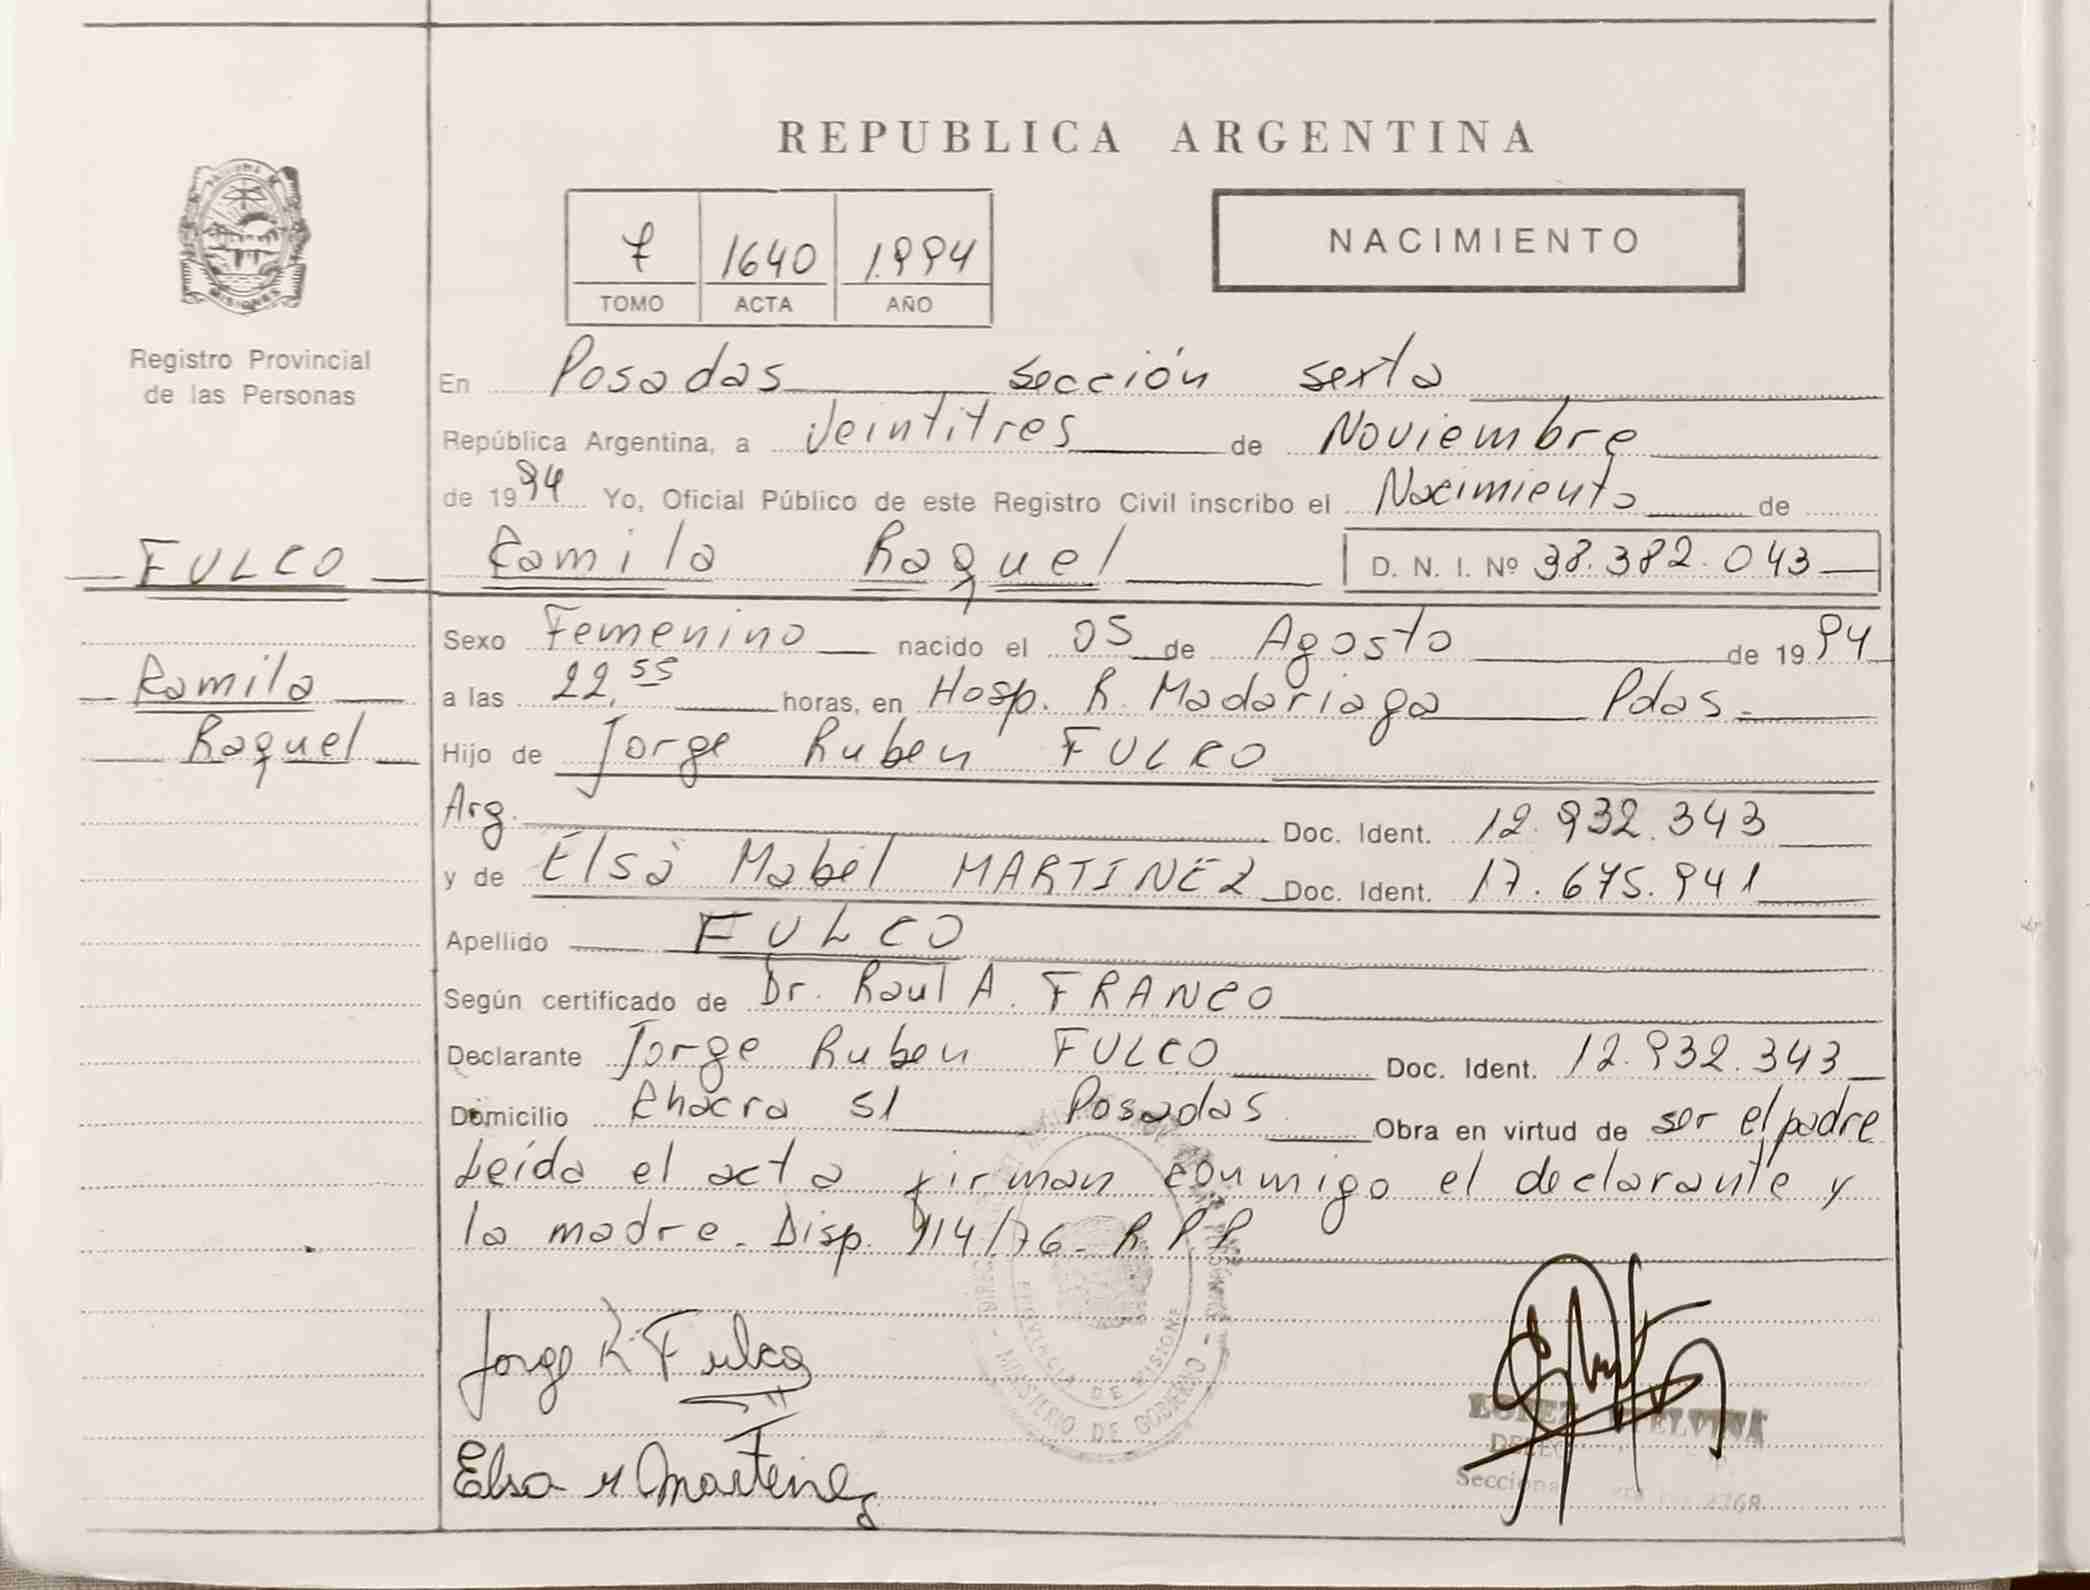 REPUBLICA ARGENTINA
NACIMIENTO
7 1640 1.994
TOMO ACTA AÑO
Registro Provincial
de las Personas
En Posadas sección sexta
República Argentina, a Veintitres de Noviembre
de 1994 Yo, Oficial Público de este Registro Civil inscribo el Nacimiento de
FULCO Camila Raquel D. N. I. Nº 38.382.043
Sexo Femenino nacido el 05 de Agosto de 1994
Camila
a las 22,55 horas, en Hosp. R. Madariaga Pdas.
Raquel
Hijo de Jorge Ruben FULCO
Arg. Doc. Ident. 12.932.343
y de Elsa Mabel MARTINEZ Doc. Ident. 17.675.941
Apellido FULCO
Según certificado de Dr. Raul A. FRANCO
Declarante Jorge Ruben FULCO Doc. Ident. 12.932.343
Domicilio Chacra 51 Posadas Obra en virtud de ser el padre
Leída el acta firman conmigo el declarante y
la madre. Disp. 914/76. R.P.P
Jorge R Fulco
Elsa M Martinez
PROVINCIA DE MISIONES
MINISTERIO DE GOBIERNO
LOPEZ ETELVINA